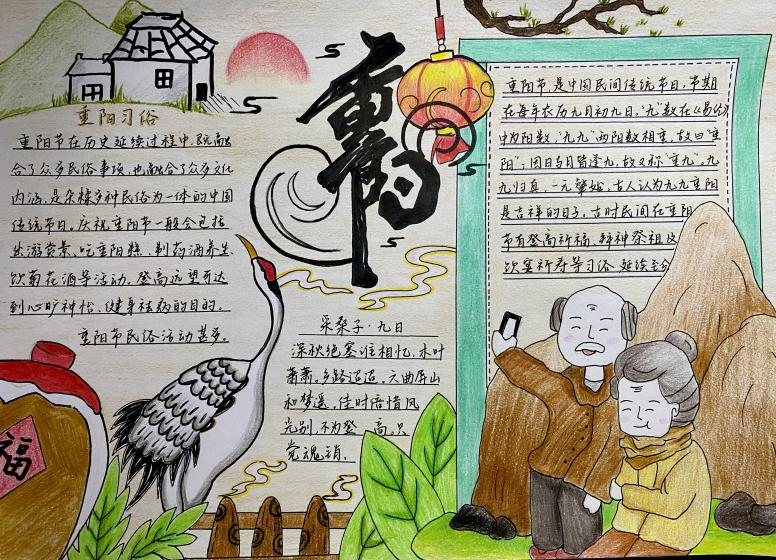 重阳
重阳习俗
重阳节在历史延续过程中,既融
合了众多民俗事项,也融合了众多文化
内涵,是杂糅多种民俗为一体的中国
传统节日。庆祝重阳节一般会包括
出游赏景、吃重阳糕、制药酒养生、
饮菊花酒等活动,登高远望可达
到心旷神怡、健身祛病的目的。
重阳节民俗活动甚多。
采桑子·九日
深秋绝塞谁相忆,木叶
萧萧。乡路迢迢。六曲屏山
和梦遥。佳时倍惜风
光别,不为登高。只
觉魂销。
重阳节,是中国民间传统节日,节期
在每年农历九月初九日,"九"数在《易经》
中为阳数,"九九"两阳数相重,故曰"重
阳";因日与月皆逢九,故又称"重九"。九
九归真,一元肇始,古人认为九九重阳
是吉祥的日子。古时民间在重阳
节有登高祈福、拜神祭祖及
饮宴祈寿等习俗 延续至今
福